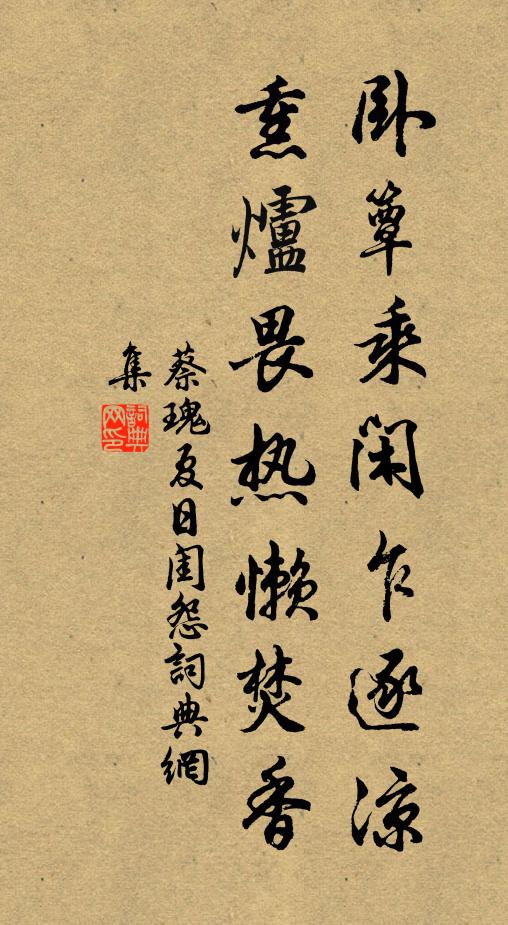 卧簟乘闲乍逐凉
熏爐畏热懒焚香
蔡瑰夏日閨怨詞典網
集
詞典
网印